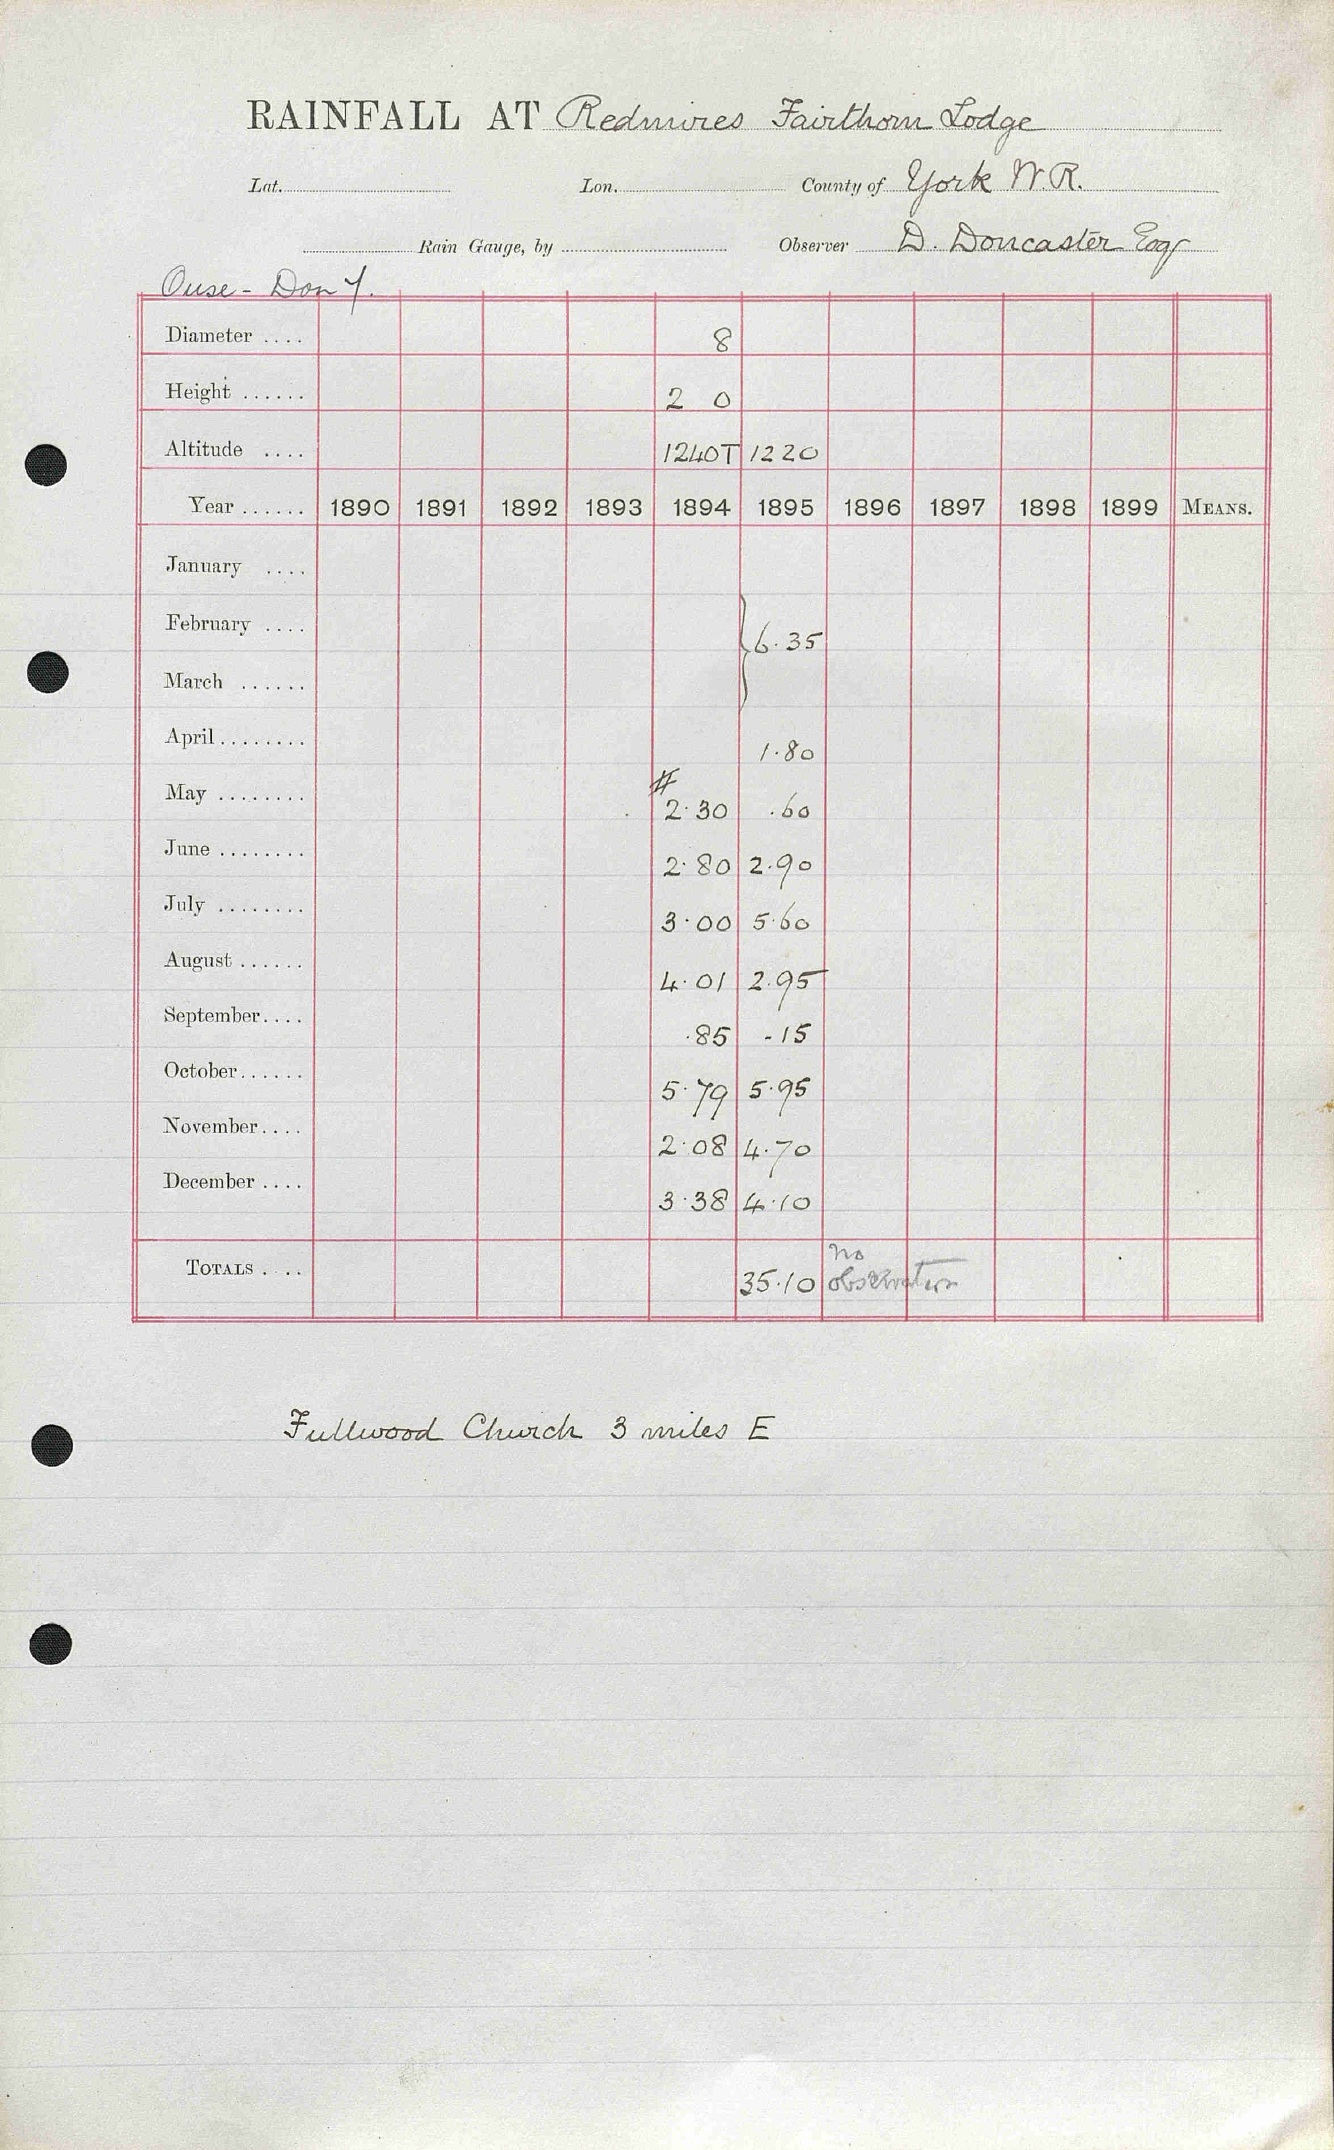 RAINFALL AT Redmires Fairthorn Lodge
Lat. Lon. County of York W.R.
Rain Gauge, by Observer D. Doncaster Esqr
Ouse - Don 7.
Diameter .... 8
Height ...... 2 0
Altitude .... 1240T 1220
Year ...... 1890 1891 1892 1893 1894 1895 1896 1897 1898 1899 MEANS.
January ....
February .... } 6.35
March ......
April ........ 1.80
#
May ........ 2.30 .60
June ........ 2.80 2.90
July ........ 3.00 5.60
August ...... 4.01 2.95
September.... .85 .15
October...... 5.79 5.95
November.... 2.08 4.70
December .... 3.38 4.10
no
TOTALS .... 35.10 observation
Fullwood Church 3 miles E